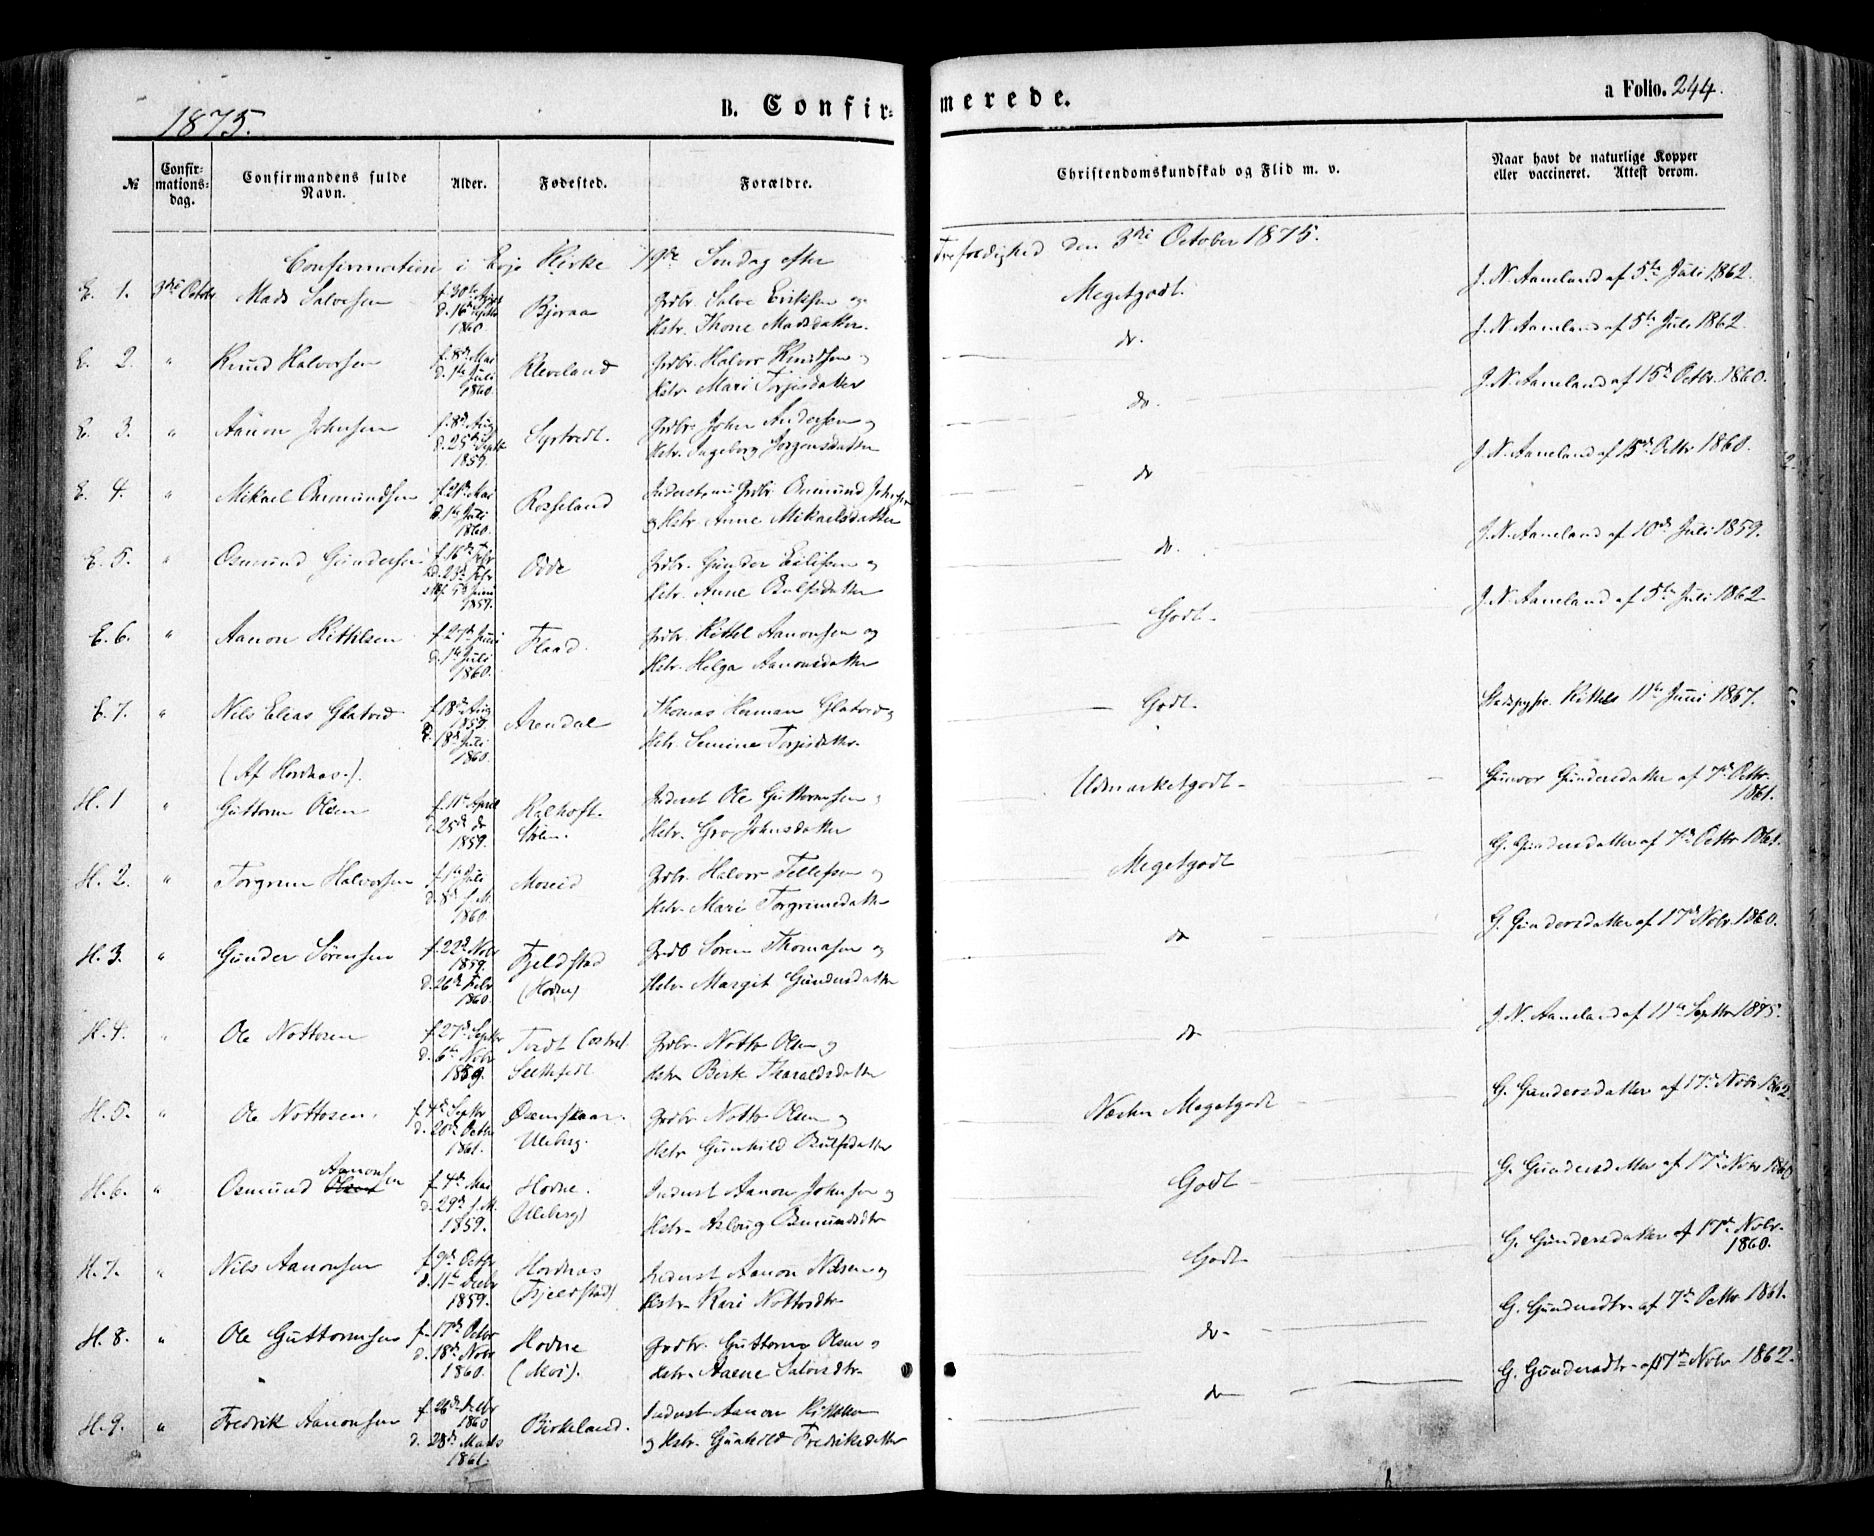 1875.
B. Confirmerede.
a Folio. 244.
№ Confirmationsdag. Confirmandens fulde Navn. Alder. Fødested. Forældre. Christendomskundskab og Flid m. v. Naar havt de naturlige Kopper eller vaccineret. Attest derom.
Confirmation i Kirke 19de Søndag efter Trefoldighed den 3die October 1875.
E. 1. 3die Octobr Mads Salvesen Bjoraa Grdbr. Salve Eriksen og Megetgodt. J. N. Aaneland af 5te Juli 1862.
1860. Hstr. Thone Madsdatter.
E. 2. " Knud Halvorsen f. 8de Mai Kleveland Grdbr. Halvor Knudsen og do. J. N. Aaneland af 5te Juli 1862.
d. 1ste Juli 1860. Hstr. Mari Torjisdatter
E. 3. " Aanon Johnsen f. 8de Aug Grdbr. John Andersen og do. J. N. Aaneland af 15de Octbr. 1860.
d. 25de Septbr 1859. Hstr. Ingeborg Jørgensdatter
E. 4. " Mikael Osmundsen f. 21de Mai Rosseland Grdbr. Osmund Johnsen do J. N. Aaneland af 15de Octbr 1860.
d. 1ste Juli 1860. og Hstr. Anne Mikaelsdatter
E. 5. " Osmund Gundersen f. 16de Febr Odde Grdbr. Gunder Eilifsen og do. J. N. Aaneland af 10de Juli 1859.
d. 23de Febr 5te Juni 1859. Hstr. Anne
E. 6. " Aanon Kittilsen f. 27de Juni Flaad. Grdbr. Kittel Aanonsen og Godt. J. N. Aaneland af 5te Juli 1862.
d. 1ste Juli 1860. Hstr. Helga Aanonsdatter
E. 7. " Nils Elias Glatved f. 18de Aug 1859. Arendal Thomas Herman Glatved og Godt. 11te Juni 1867.
d. 18de Juli 1860. Hstr. Semine Torjisdatter.
(Af Hordnæs.)
H. 1 " Guttorm Olsen f. 11te April Inderst Ole Guttormsen og Udmærketgodt. Gunvor Gundersdatter af 7de Octbr. 1861.
d. 25de do 1859. Hstr. Gro Johnsdatter
H. 2. " Torgrim Halvorsen f. 1ste Juli Moseid Grdbr. Halvor Tellefsen og Megetgodt G. Gundersdatter af 7de Octbr 1861.
d. 8de s. M. 1860. Hstr. Mari Torgrimsdatter
H. 3. " Gunder Sørensen f. 22de Nobr 1859. Fjeldstad Grdb Søren Thomasen og do G. Gundersdatter af 17de Nobr. 1860.
d. 26de Febr 1860. (Hodne) Hstr. Margit Gundersdatter
H. 4. " Ole Nottosen f. 27de Septbr Tvedt Grdbr. Notto Olsen og do J. N. Aaneland af 11te Septbr 1875.
d. 6te Nobr 1859. Hstr. Berte Tharaldsdatter
H. 5. " Ole Nottosen. f. 4de Septbr Grdbr. Notto Olsen og Næsten Megetgodt G. Gundersdatter af 17de Nobr 1862.
d. 20de Octbr 1861. Uleberg. Hstr. Gunhild
H. 6. " Osmund Aanonsen f. 4de Mai Hodne. Inderst Aanon Johnsen og Godt G. Gundersdatter af 17de Nobr 1860
d. 29de s. M. 1859. (Uleberg) Hstr. Aslaug Osmundsdtr
H. 7. " Nils Aanonsen f. 9de Octbr Hordnæs Inderst Aanon Nilsen og Godt. G. Gundersdatter af 17de Nobr. 1860.
d. 11te 1859. Hstr. Kari Nottosdtr
H. 8. " Ole Guttormsen f. 17de Octbr Hodne Grdbr. Guttorm Olsen og do G. Gundersdtr. af 7de Octbr 1861.
d. 18de Nobr 1860. (Moi). Hstr. Salvesdtr.
H. 9. " Fredrik Aanonsen f. 26de 1860 Birkeland. Inderst Aanon Kittelsen do G. Gundersdtr. af 17de Nobr 1862.
d. 28de Marts 1861. og Hstr. Gunhild Fredriksdatter